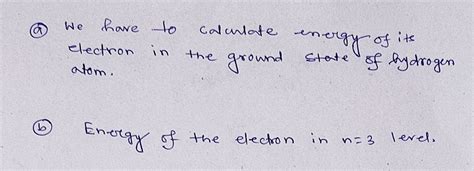 (a) We have to calculate energy of its
electron in the ground state of hydrogen
atom.
(b) Energy of the electron in n=3 level.